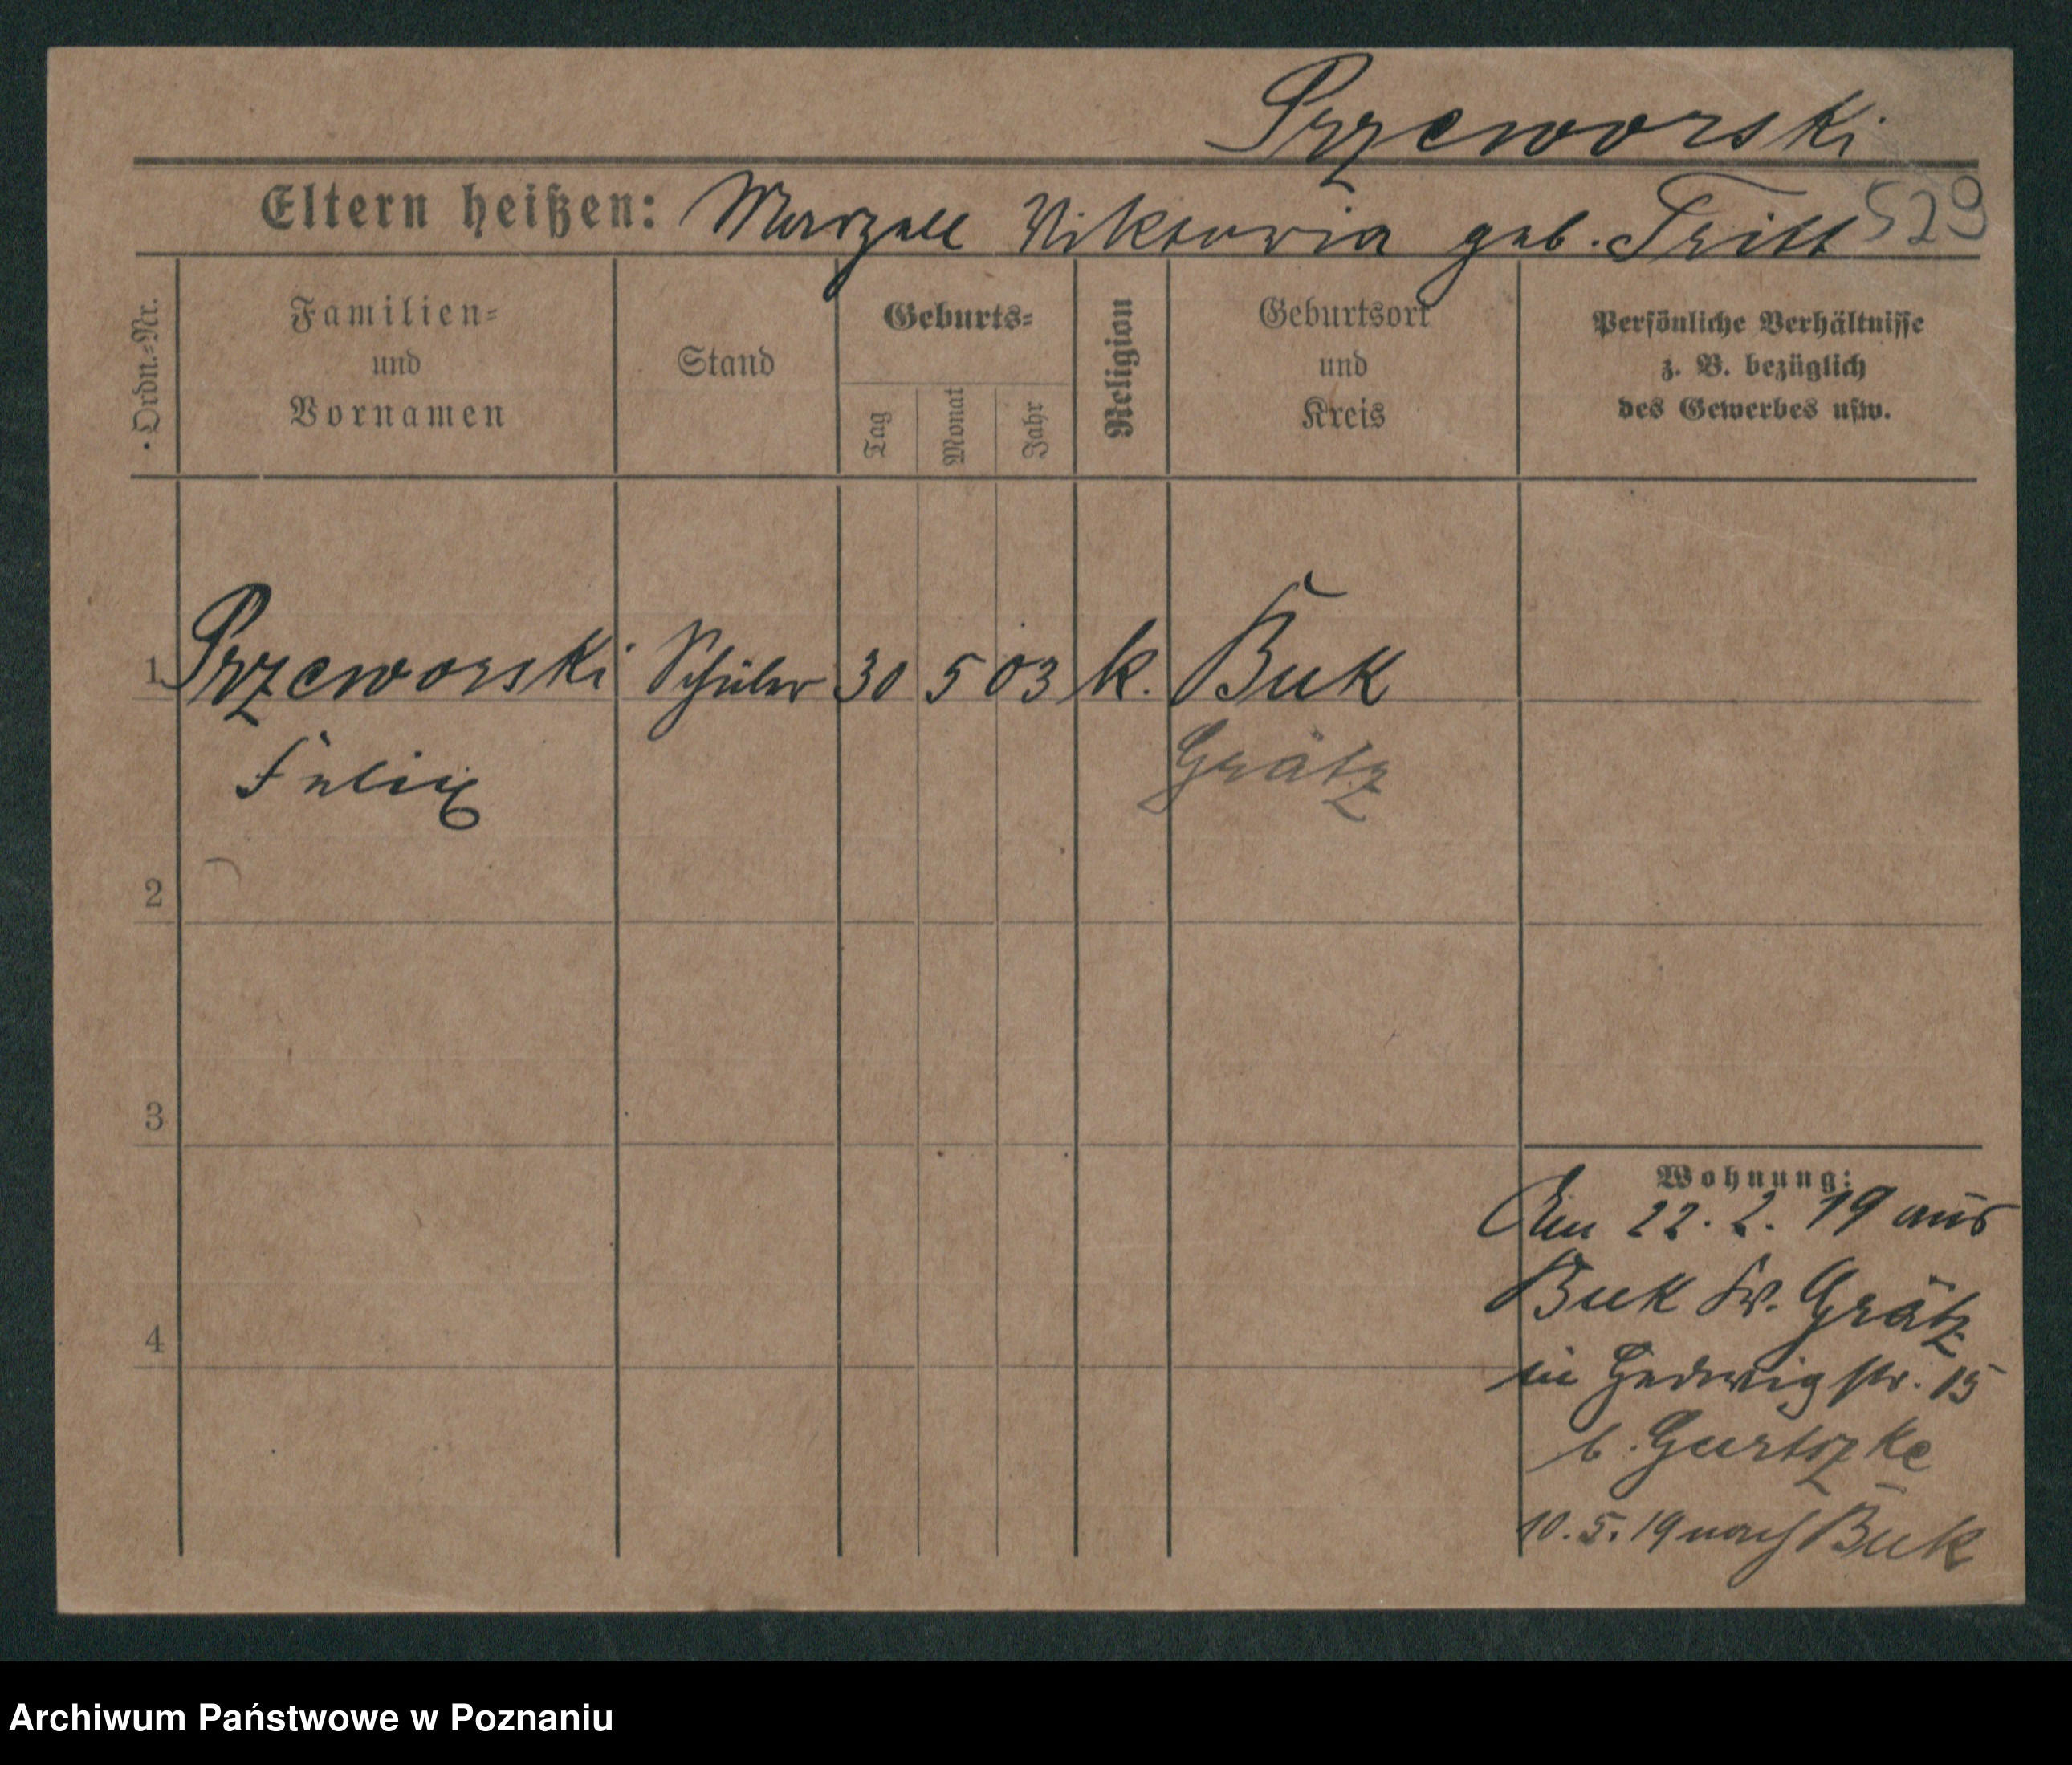 Przeworski
Eltern heißen: Marzell Viktoria geb. Tritt 529
Ordn.-Nr.
Familien-
und
Vornamen
Stand
Geburts-
Tag
Monat
Jahr
Religion
Geburtsort
und
Kreis
Persönliche Verhältnisse
z. B. bezüglich
des Gewerbes usw.
1 Przeworski Schüler 30 5 03 k. Buk
Felix Grätz
2
3
4
Wohnung:
Am 22. 2. 19 aus
Buk Kr. Grätz
in Hedwigstr. 15
b.
10. 5. 19 nach Buk
Archiwum Państwowe w Poznaniu